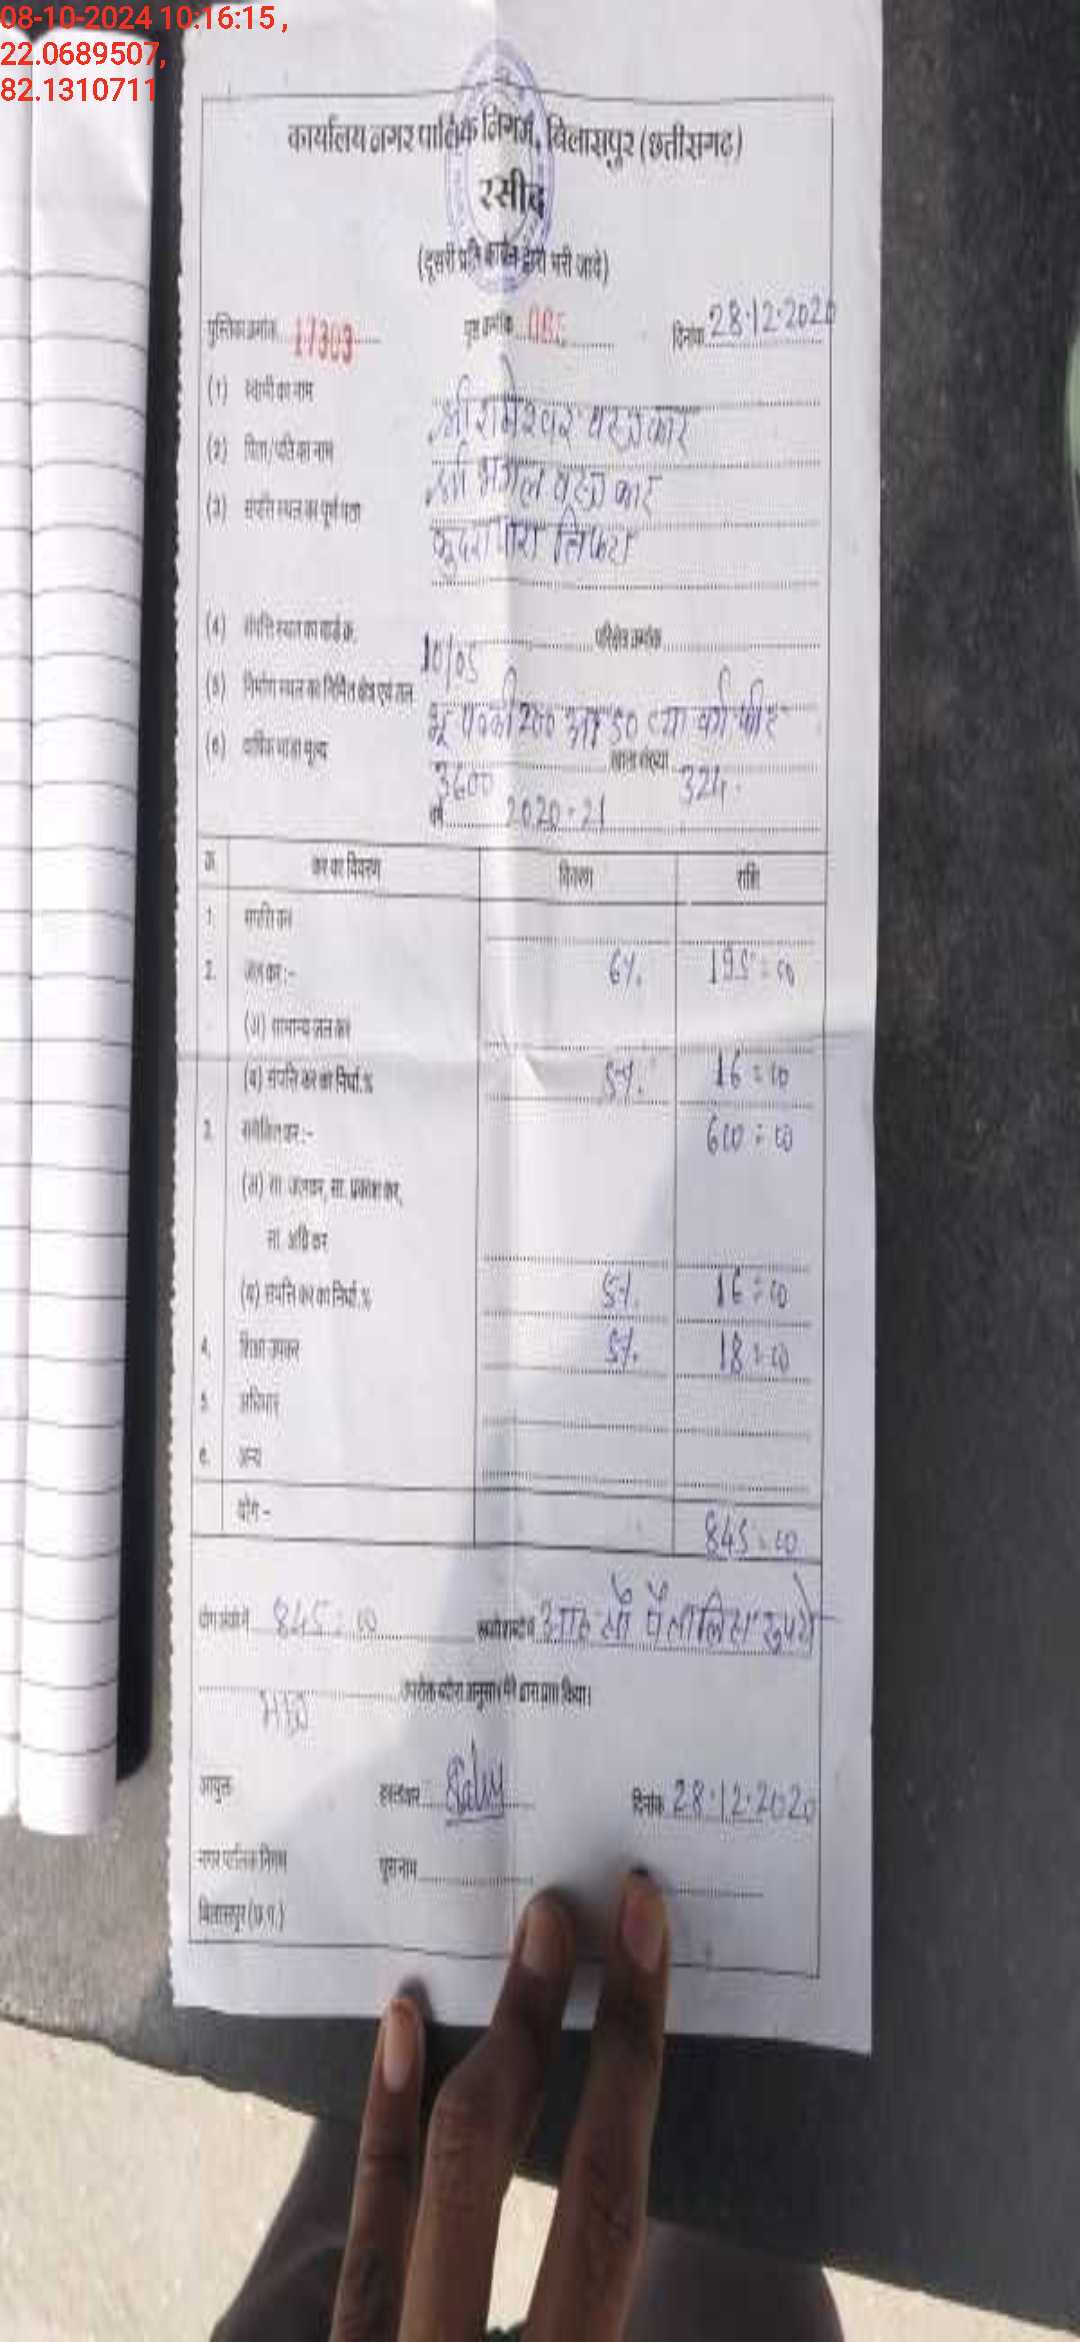 08-10-2024 10:16:15 ,
22.0689507,
82.1310711
कार्यालय नगर पालिक निगम, बिलासपुर (छत्तीसगढ़)
रसीद
(दूसरी प्रति कार्बन द्वारा भरी जावे)
पुस्तिका क्रमांक 17303 पृष्ठ क्रमांक दिनांक 28.12.2020
(1) स्वामी का नाम श्री रामेश्वर वस्त्रकार
(2) पिता/पति का नाम श्री मंगल वस्त्रकार
(3) संपत्ति स्थल का पूर्ण पता कुदरापारा तिफरा
(4) संपत्ति स्थल का वार्ड क्र. 10/05 परिक्षेत्र क्रमांक
(5) निर्माण स्थल का निर्मित क्षेत्र एवं तल भू पक्की 200
(6) वार्षिक भाड़ा मूल्य 3600 खाता संख्या 324
वर्ष 2020-21
क्र. कर का विवरण विवरण राशि
1. संपत्ति कर 6% 195=00
2. जल कर :-
(अ) सामान्य जल कर
(ब) संपत्ति कर का निर्धा.% 5% 16=00
3. समेकित कर :- 600=00
(अ) सा. जलकर, सा. प्रकाश कर,
सा. अग्नि कर
(ब) संपत्ति कर का निर्धा.% 5% 16=00
4. शिक्षा उपकर 5% 18=00
5. अधिभार
6. अन्य
योग - 845=00
योग अंकों में 845=00 रूपये शब्दों में आठ सौ पैंतालिस रुपये
मात्र उपरोक्त ब्यौरा अनुसार मेरे द्वारा प्राप्त किया।
आयुक्त हस्ताक्षर दिनांक 28.12.2020
नगर पालिक निगम पूरा नाम
बिलासपुर (छ.ग.)